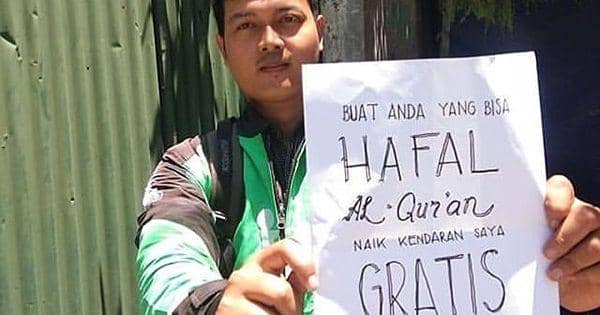 BUAT ANDA YANG BISA
HAFAL
AL-Qur'an
NAIK KENDARAN SAYA
GRATIS